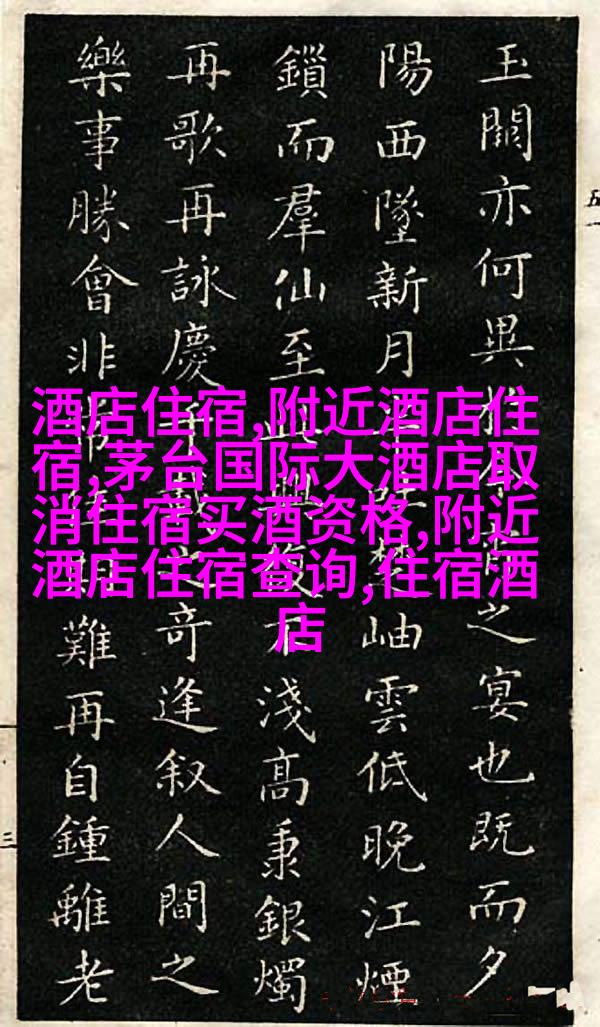 玉關亦何異今之宴也既而夕
陽西墜新月楚岫雲低晚江煙
鎖而羣仙至此興復不淺高秉銀燭
再歌再詠慶千載之奇逢叙人間之
樂事勝會非常難再自鍾離老
酒店住宿,附近酒店住
宿,茅台国际大酒店取
消住宿买酒资格,附近
酒店住宿查询,住宿酒
店
五一
三